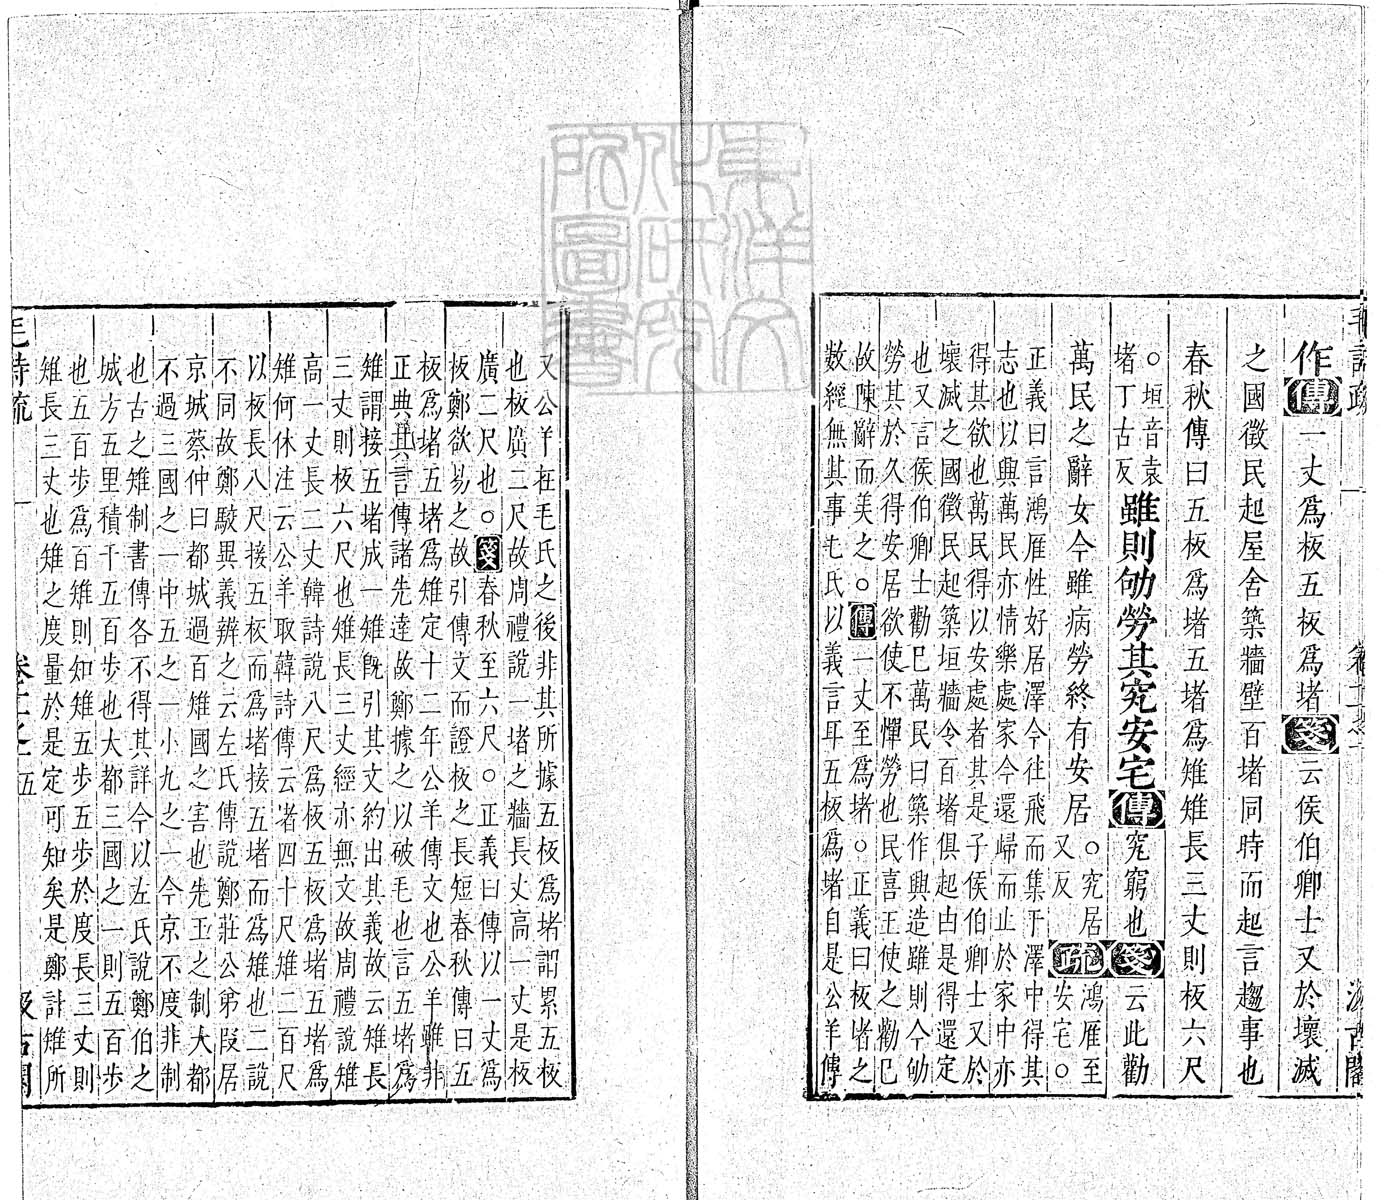 作傳一丈爲板五板爲堵箋云侯伯卿士又於壞滅
之國徵民起屋舍築牆壁百堵同時而起言趨事也
春秋傳曰五板爲堵五堵爲雉雉長三丈則板六尺
○垣音袁
堵丁古反
雖則劬勞其究安宅傳究窮也箋云此勸
萬民之辭女今雖病勞終有安居
○究居
又反
疏
鴻雁至
安宅○
正義曰言鴻雁性好居澤今往飛而集于澤中得其
志也以興萬民亦情樂處家今還歸而止於家中亦
得其欲也萬民得以安處者其是子侯伯卿士又於
壞滅之國徵民起築垣牆令百堵俱起由是得還定
也又言侯伯卿士勸巳萬民曰築作興造雖則今劬
勞其於久得安居欲使不憚勞也民喜王使之勸巳
故陳辭而美之○傳一丈至爲堵○正義曰板堵之
數經無其事毛氏以義言耳五板爲堵自是公羊傳
又公羊在毛氏之後非其所據五板爲堵謂累五板
也板廣二尺故周禮說一堵之牆長丈高一丈是板
廣二尺也○箋春秋至六尺○正義曰傳以一丈爲
板鄭欲易之故引傳文而證板之長短春秋傳曰五
板爲堵五堵爲雉定十二年公羊傳文也公羊雖非
正典其言傳諸先達故鄭據之以破毛也言五堵爲
雉謂接五堵成一雉旣引其文約出其義故云雉長
三丈則板六尺也雉長三丈經亦無文故周禮說雉
高一丈長二丈韓詩說八尺爲板五板爲堵五堵爲
雉何休注云公羊取韓詩傳云者四十尺雉二百尺
以板長八尺接五板而爲堵接五堵而爲雉也二說
不同故鄭駁異義辨之云左氏傳說鄭莊公弟段居
京城蔡仲曰都城過百雉國之害也先王之制大都
不過三國之一中五之一小九之一今京不度非制
也古之雉制書傳各不得其詳今以左氏說鄭伯之
城方五里積千五百步也大都三國之一則五百步
也五百步爲百雉則知雉五步五步於度長三丈則
雉長三丈也雉之度量於是定可知矣是鄭計雉所
毛詩疏 卷十一之一 五 汲古閣